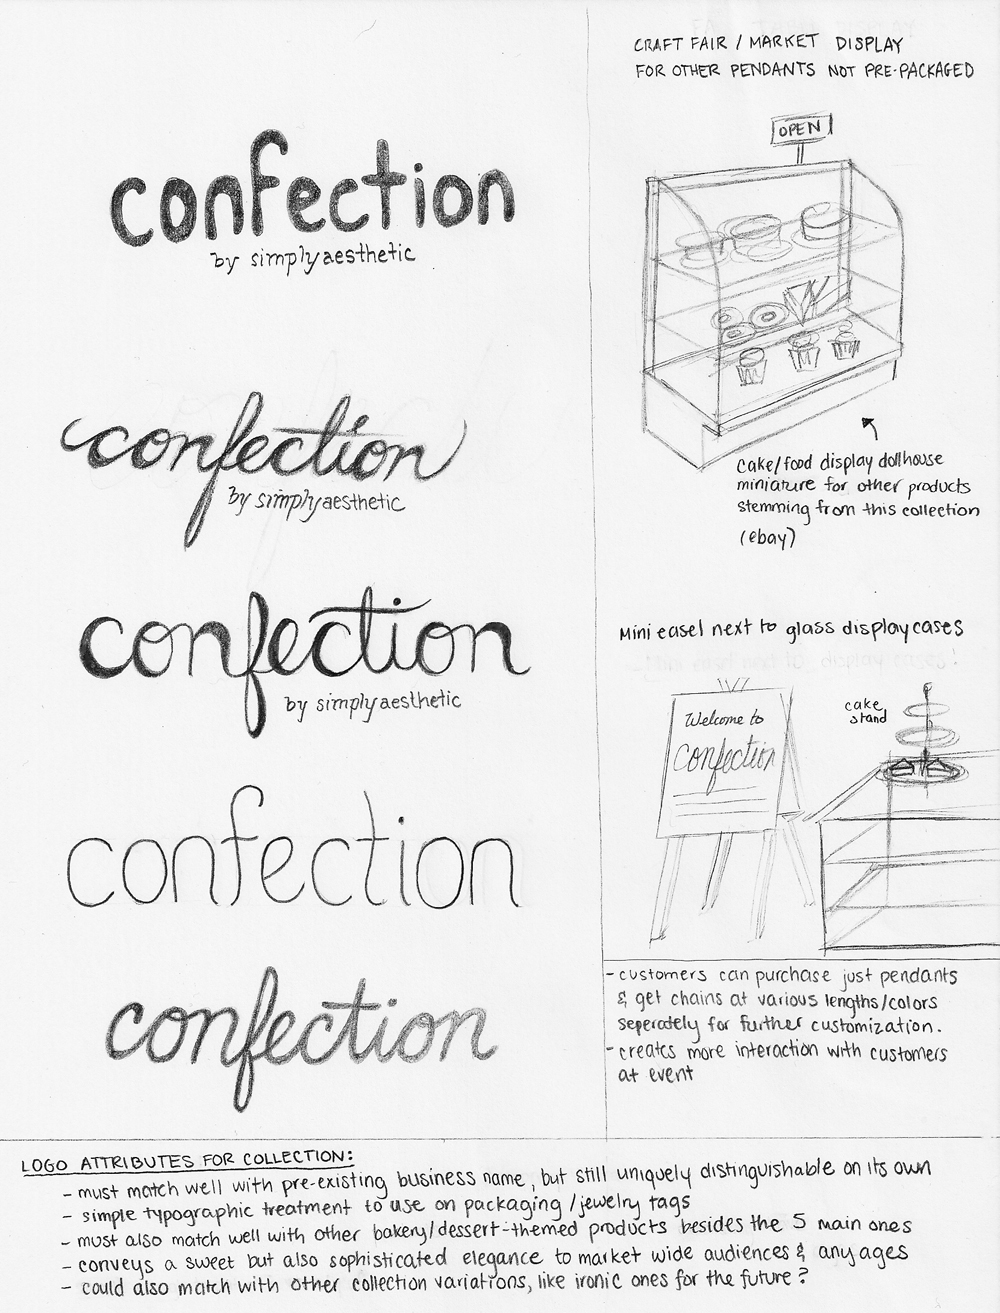 confection
by simplyaesthetic
confection
by simplyaesthetic
confection
by simplyaesthetic
confection
confection
CRAFT FAIR / MARKET DISPLAY
FOR OTHER PENDANTS NOT PRE-PACKAGED
OPEN
cake/food display dollhouse
miniature for other products
stemming from this collection
(ebay)
Mini easel next to glass display cases
Welcome to
Confection
cake
stand
- customers can purchase just pendants
& get chains at various lengths/colors
seperately for further customization.
- creates more interaction with customers
at event
LOGO ATTRIBUTES FOR COLLECTION:
- must match well with pre-existing business name, but still uniquely distinguishable on its own
- simple typographic treatment to use on packaging /jewelry tags
- must also match well with other bakery/dessert-themed products besides the 5 main ones
- conveys a sweet but also sophisticated elegance to market wide audiences & any ages
- could also match with other collection variations, like ironic ones for the future?